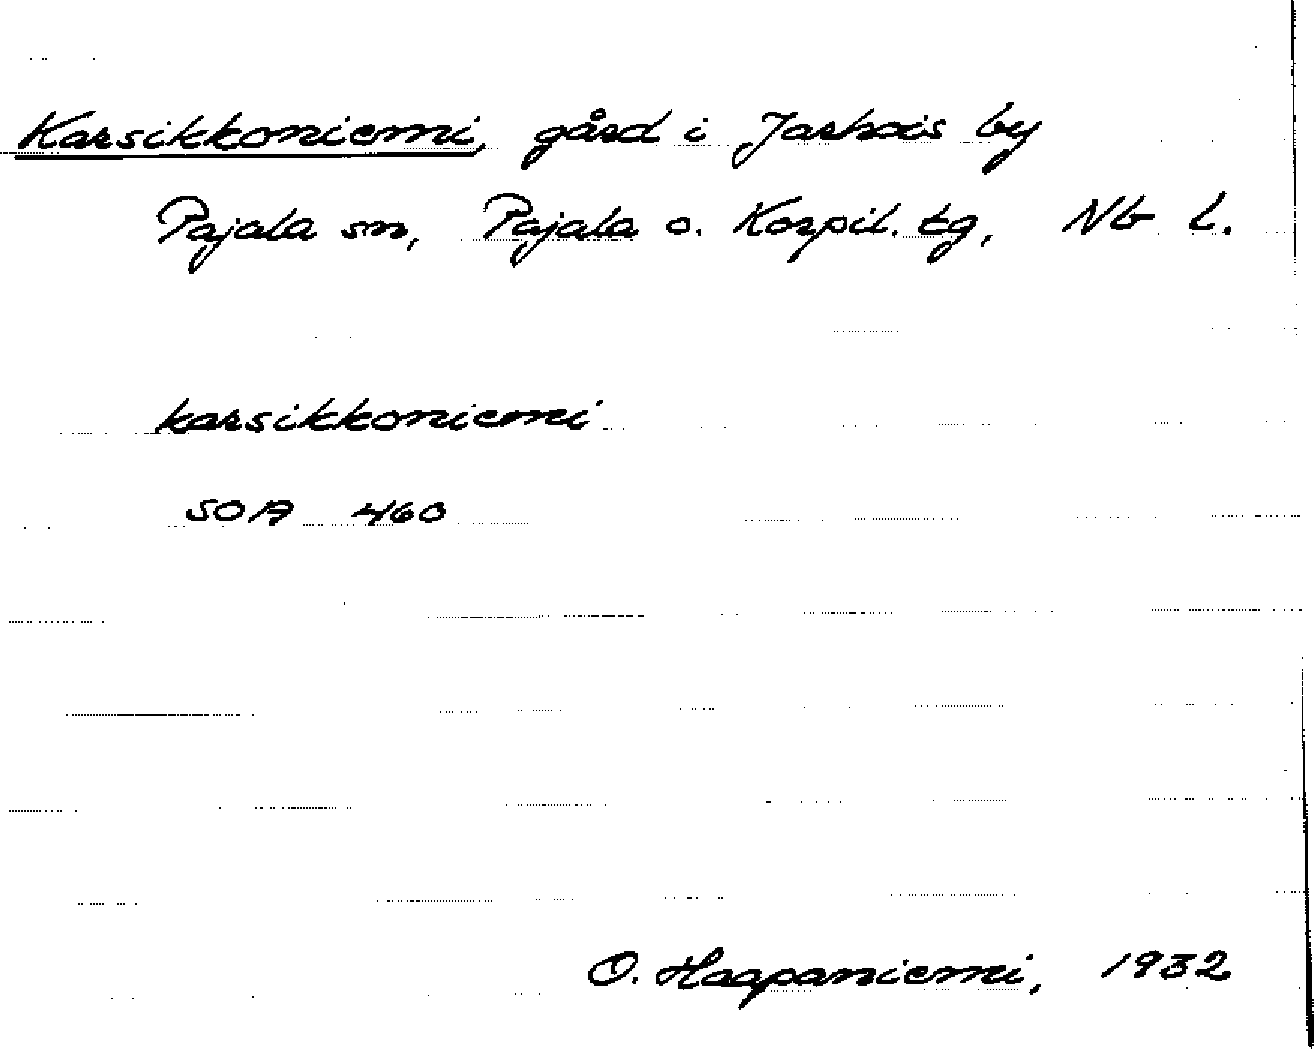 Karsikkoniemi, gård i Jarhois by
Pajala sn, Pajala o. Korpil. tg, Nb l.
karsikkoniemi
SOA 460
O. Haapaniemi, 1932